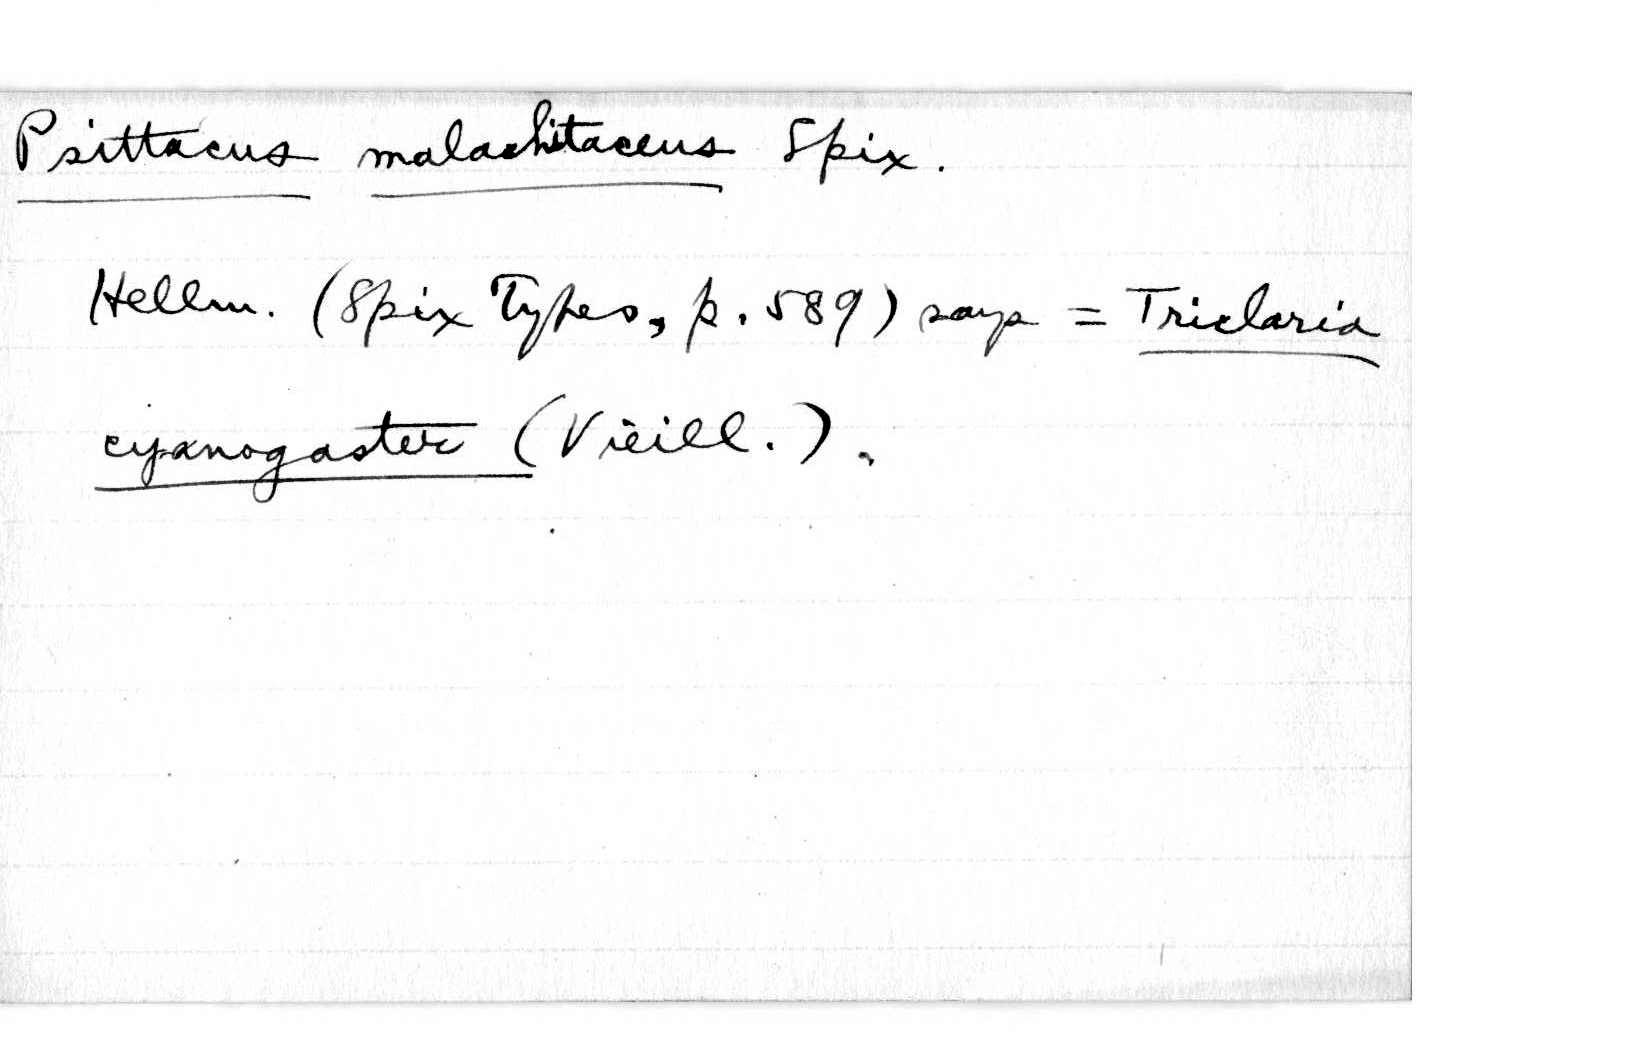 Psittacus malachitaceus Spix.
Hellm. (Spix Types, p. 589) says = Triclaria
cyanogaster (Vieill.).